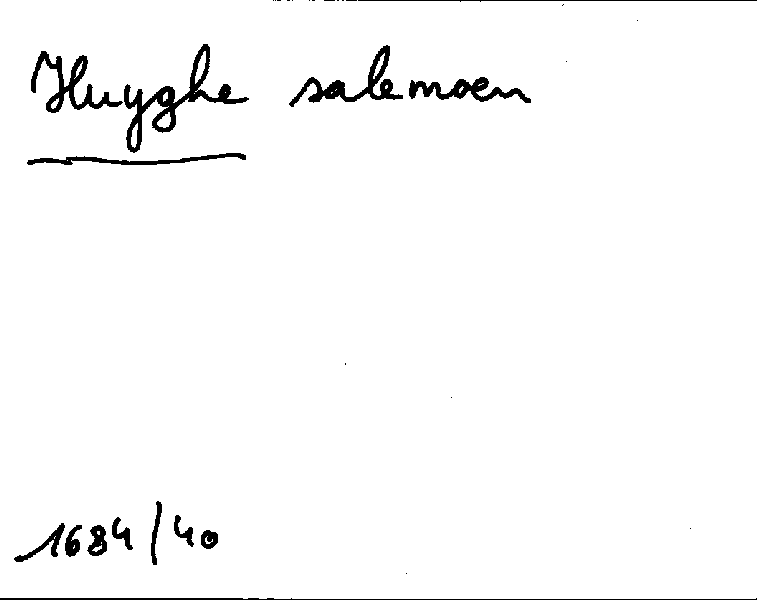 Huyghe salemoen
1684/40